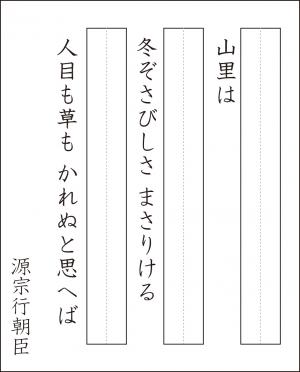 山里は
冬ぞさびしさ まさりける
人目も草も かれぬと思へば
源宗行朝臣